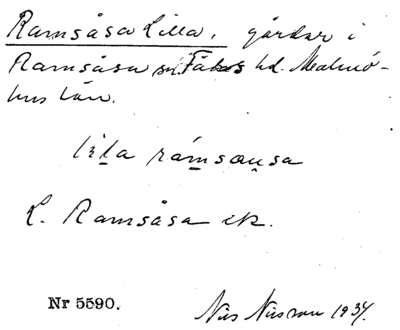 Ramsåsa Lilla, gårdar i
Ramsåsa sn. Färs hd. Malmö-
hus län.
lila rámsausa
L. Ramsåsa ek.
Nr 5590.
Nils Nilsson 1934.